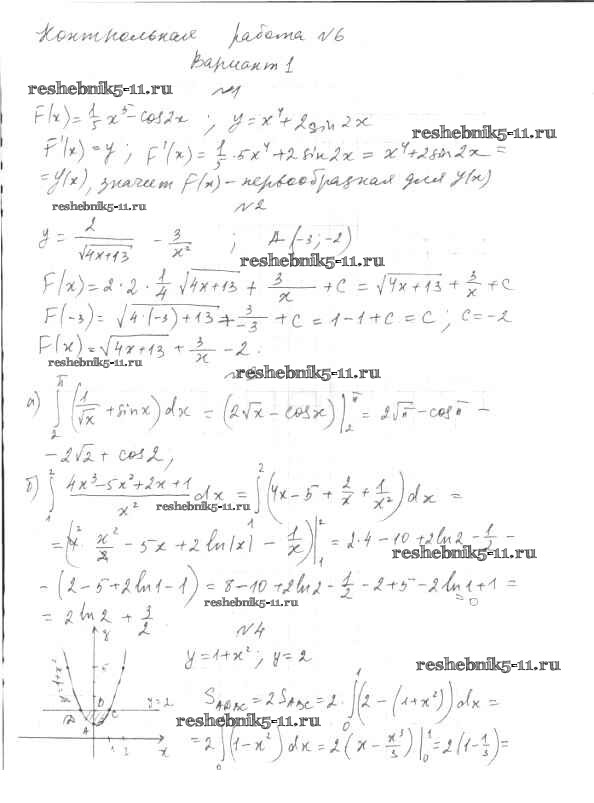 Контрольная работа №6
Вариант 1
reshebnik5-11.ru
№1
F(x) = 1/5 x⁵ - cos2x ; y = x⁴ + 2sin2x
reshebnik5-11.ru
F'(x) = y ; F'(x) = 1/5 · 5x⁴ + 2sin2x = x⁴ + 2sin2x =
= y(x), значит F(x) - первообразная для y(x)
reshebnik5-11.ru
№2
y = 2/√(4x+13) - 3/x² ; A(-3;-2)
reshebnik5-11.ru
F(x) = 2·2·1/4 √(4x+13) + 3/x + C = √(4x+13) + 3/x + C
F(-3) = √(4·(-3)+13) + 3/-3 + C = 1-1+C = C ; C = -2
F(x) = √(4x+13) + 3/x - 2.
reshebnik5-11.ru
reshebnik5-11.ru
а) ∫₂^π (1/√x + sinx) dx = (2√x - cosx)|₂^π = 2√π - cosπ -
-2√2 + cos2;
б) ∫₁² (4x³-5x²+2x+1)/x² dx = ∫₁² (4x - 5 + 2/x + 1/x²) dx =
= (4 · x²/2 - 5x + 2ln|x| - 1/x)|₁² = 2·4 - 10 + 2ln2 - 1/2 -
reshebnik5-11.ru
- (2-5+2ln1-1) = 8-10+2ln2 - 1/2 - 2+5-2ln1+1 =
=0
reshebnik5-11.ru
= 2ln2 + 3/2.
№4
y = 1+x² ; y = 2
reshebnik5-11.ru
y
y=1+x²
5
y=2
B
D
C
A
1
2
x
= 2S = 2·∫₀¹ (2-(1+x²)) dx =
reshebnik5-11.ru
= 2∫₀¹ (1-x²) dx = 2(x - x³/3)|₀¹ = 2(1 - 1/3) =